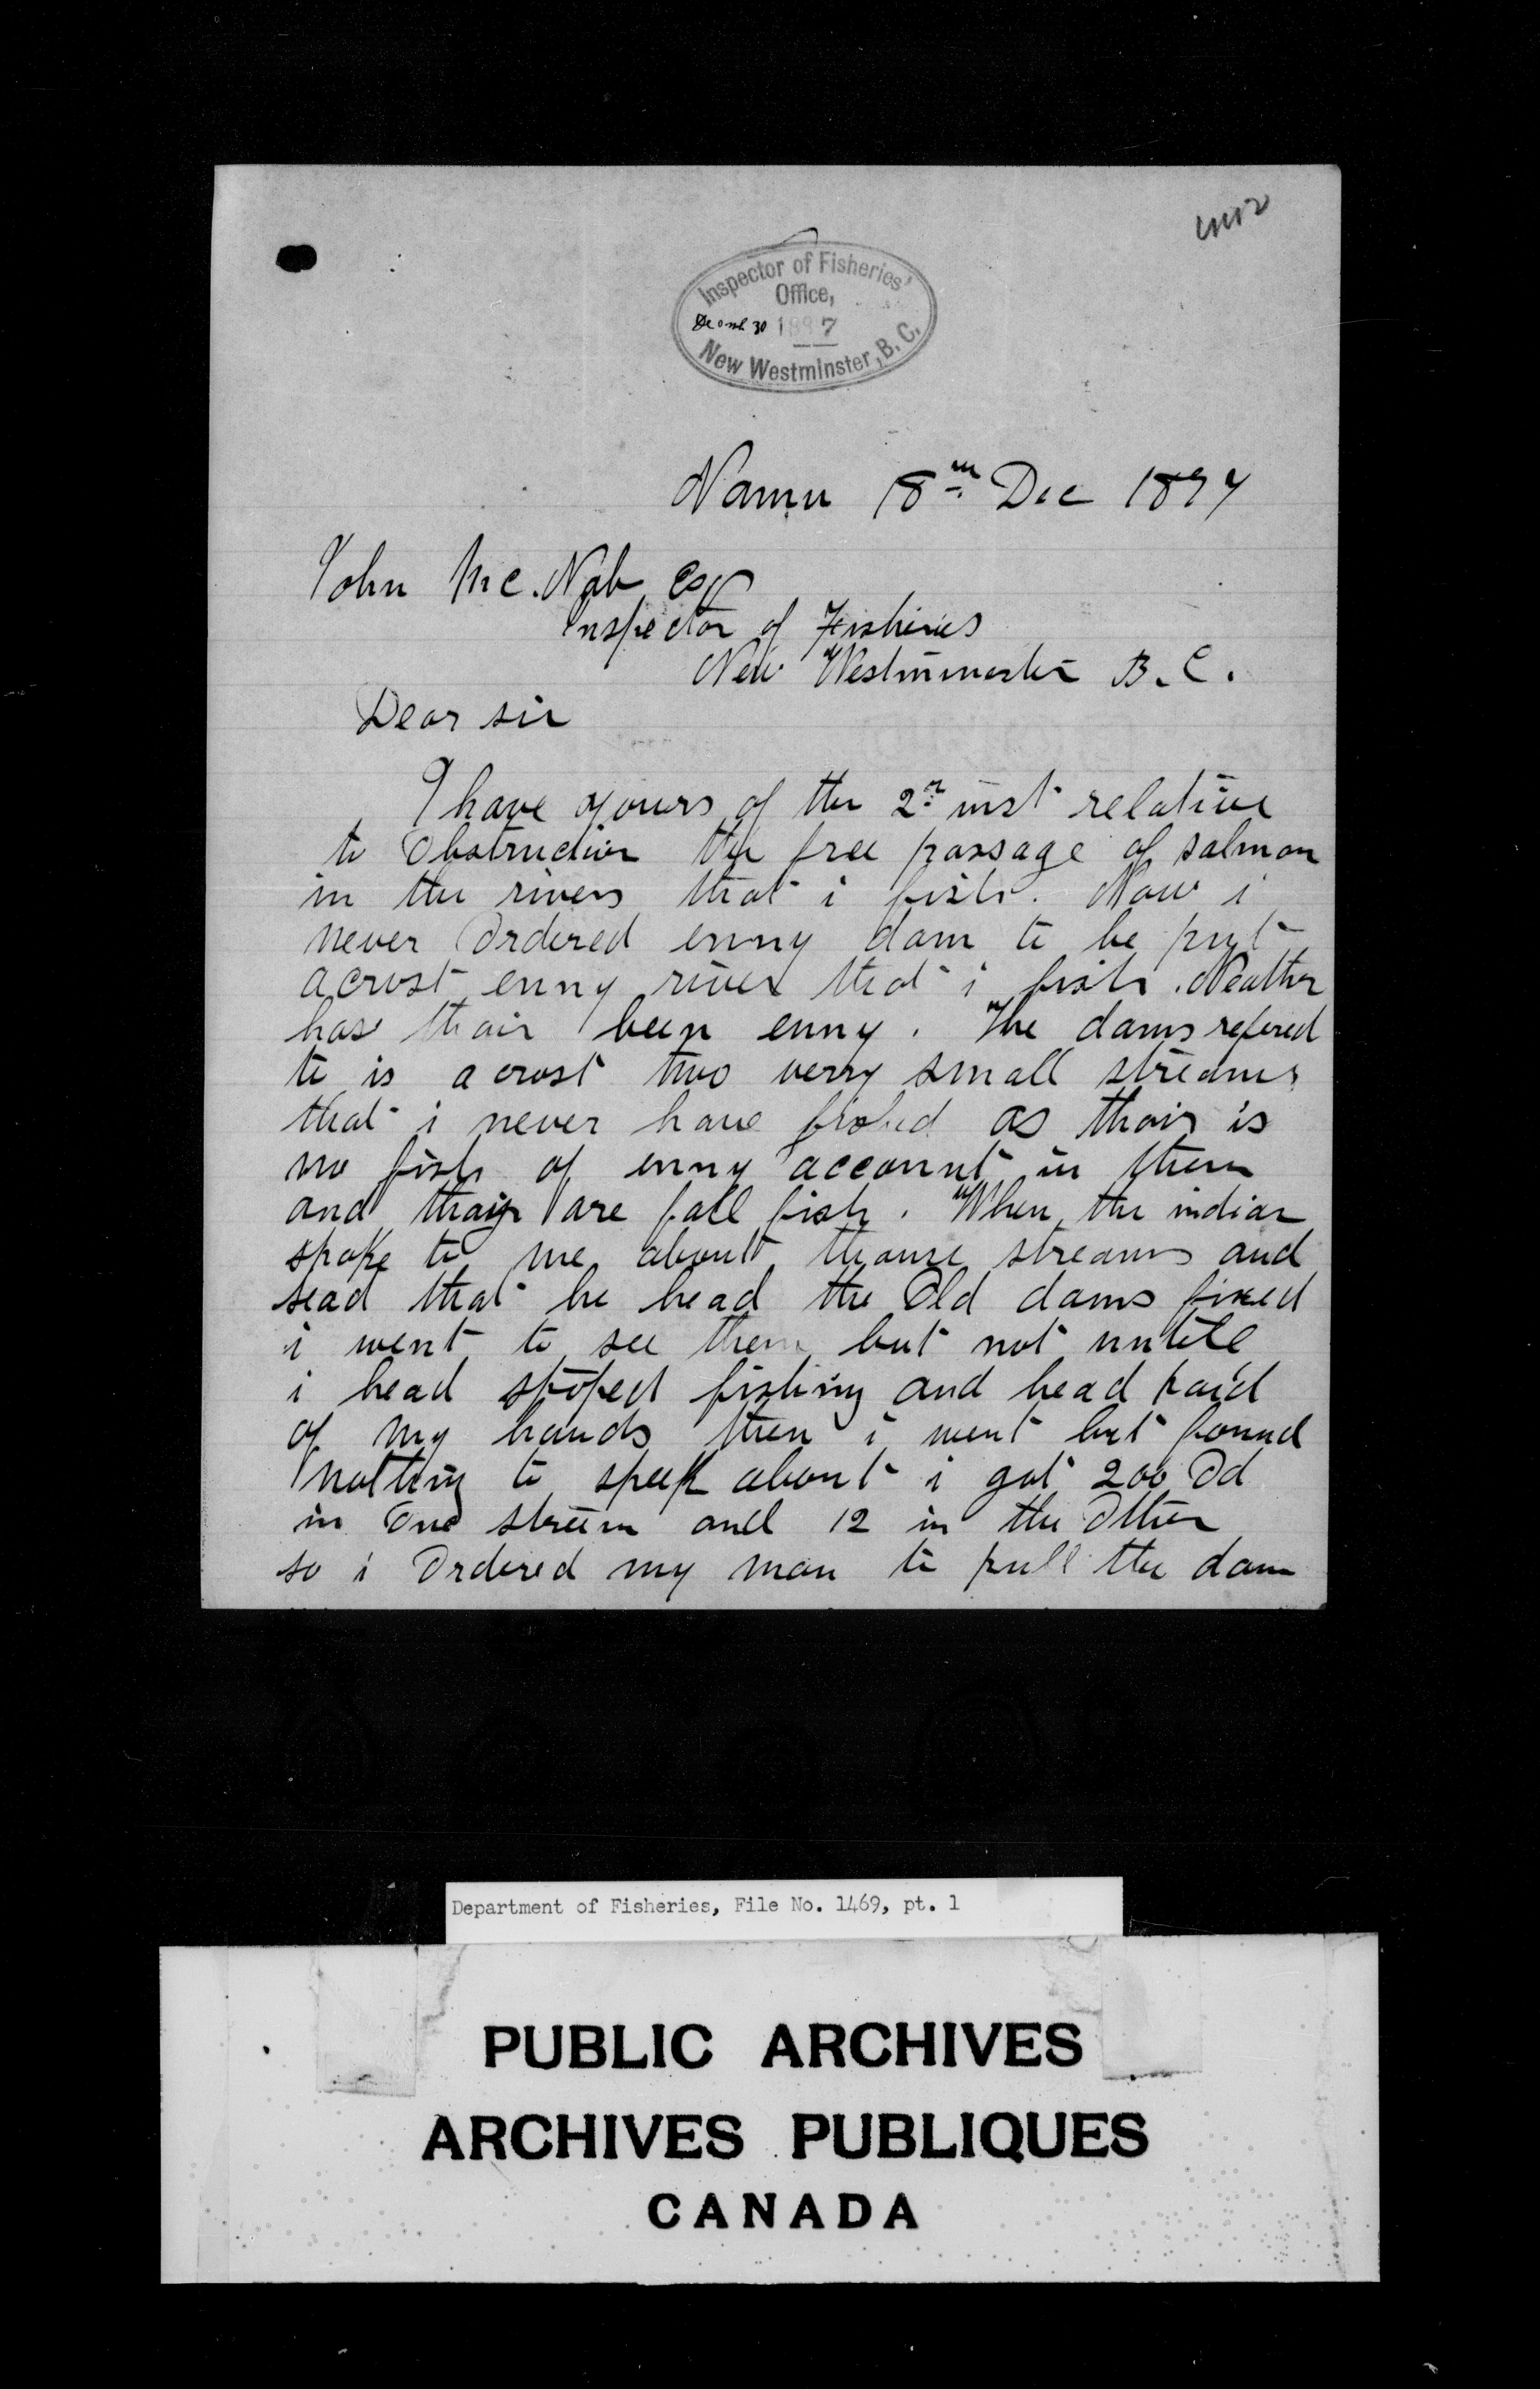 Inspector of Fisheries'
Office,
30 1897
New Westminster, B. C.
Namu 18th Dec 1897
John Mc. Nab Esq
Inspector of Fisheries
New Westminester B. C.
Dear sir
I have yours of the 2n inst relative
to Obstruction the free passage of salmon
in the rivers that i fish. Now i
never Ordered enny dam to be put
acrost enny river that i fish. Neather
has thair been enny. The dams refered
to is acrost two verry small streams
that i never have fished as thair is
no fish of enny account in them
and thay are fall fish. When the indian
spoke to me about thouse streams and
sead that he head the Old dams fixed
i went to see them but not untile
i head stoped fishing and head paid
of my hands then i went but found
nothing to speek about i got 200 Od
in One streem and 12 in the Other
so i Ordered my man to pull the dam
Department of Fisheries, File No. 1469, pt. 1
PUBLIC ARCHIVES
ARCHIVES PUBLIQUES
CANADA